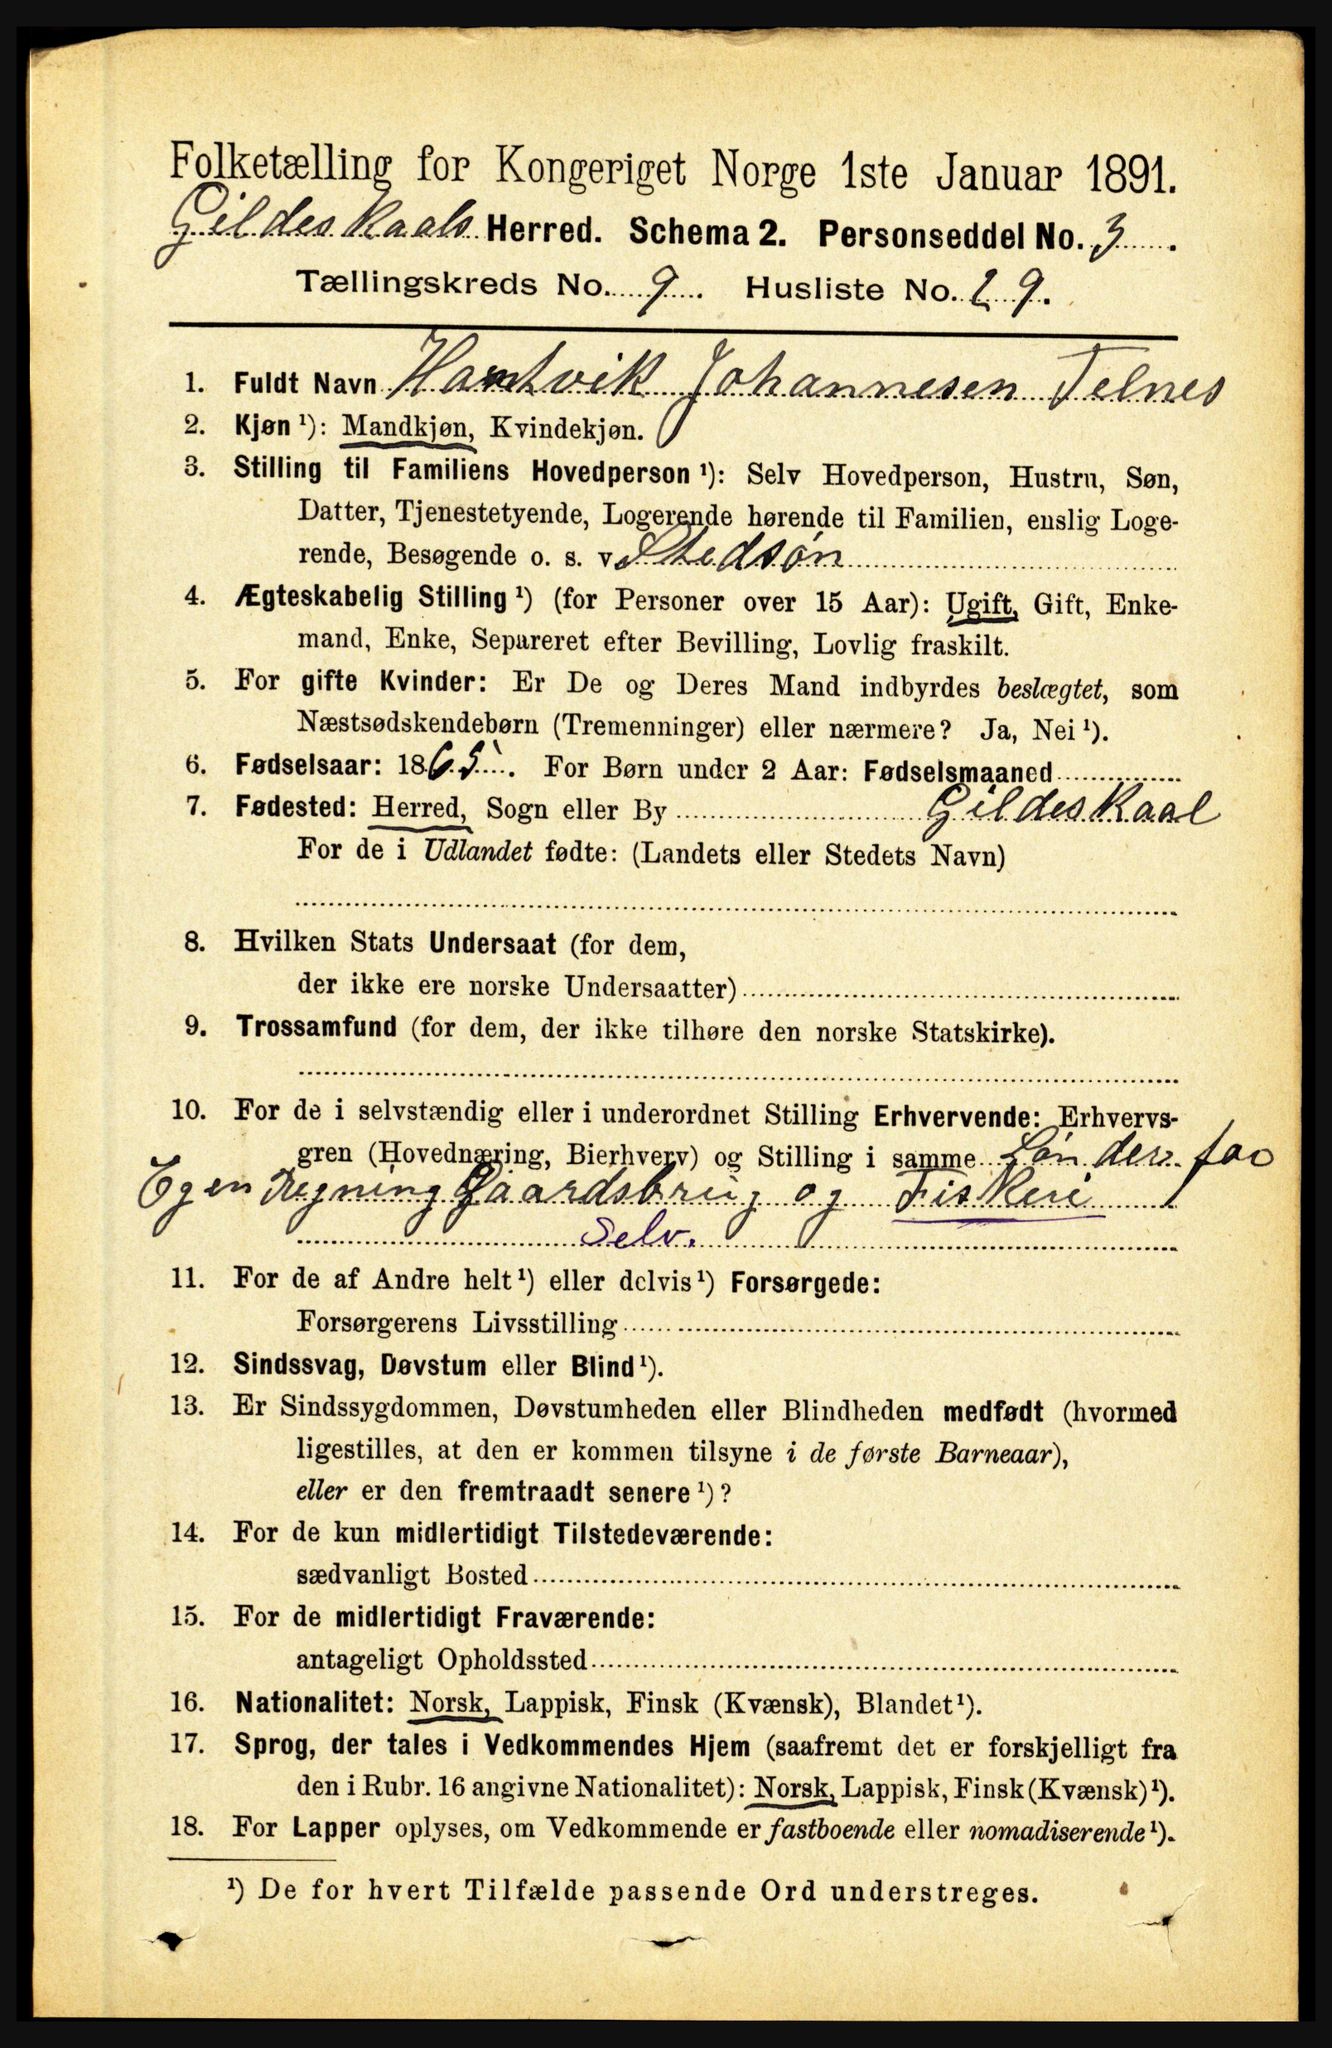 Folketælling for Kongeriget Norge 1ste Januar 1891.
Gildeskaals Herred. Schema 2. Personseddel No. 3.
Tællingskreds No. 9. Husliste No. 29.
1. Fuldt Navn Hartvik Johannesen Telnes
2. Kjøn ¹): Mandkjøn, Kvindekjøn.
3. Stilling til Familiens Hovedperson ¹): Selv Hovedperson, Hustru, Søn,
Datter, Tjenestetyende, Logerende hørende til Familien, enslig Loge-
rende, Besøgende o. s. v. Stedsøn
4. Ægteskabelig Stilling ¹) (for Personer over 15 Aar): Ugift, Gift, Enke-
mand, Enke, Separeret efter Bevilling, Lovlig fraskilt.
5. For gifte Kvinder: Er De og Deres Mand indbyrdes beslægtet, som
Næstsødskendebørn (Tremenninger) eller nærmere? Ja, Nei ¹).
6. Fødselsaar: 1865. For Børn under 2 Aar: Fødselsmaaned
7. Fødested: Herred, Sogn eller By Gildeskaal
For de i Udlandet fødte: (Landets eller Stedets Navn)
8. Hvilken Stats Undersaat (for dem,
der ikke ere norske Undersaatter)
9. Trossamfund (for dem, der ikke tilhøre den norske Statskirke).
10. For de i selvstændig eller i underordnet Stilling Erhvervende: Erhvervs-
gren (Hovednæring, Bierhverv) og Stilling i samme for
Egen Regning Gaardsbrug og Fiskeri
Selv.
11. For de af Andre helt ¹) eller delvis ¹) Forsørgede:
Forsørgerens Livsstilling
12. Sindssvag, Døvstum eller Blind ¹).
13. Er Sindssygdommen, Døvstumheden eller Blindheden medfødt (hvormed
ligestilles, at den er kommen tilsyne i de første Barneaar),
eller er den fremtraadt senere ¹)?
14. For de kun midlertidigt Tilstedeværende:
sædvanligt Bosted
15. For de midlertidigt Fraværende:
antageligt Opholdssted
16. Nationalitet: Norsk, Lappisk, Finsk (Kvænsk), Blandet ¹).
17. Sprog, der tales i Vedkommendes Hjem (saafremt det er forskjelligt fra
den i Rubr. 16 angivne Nationalitet): Norsk, Lappisk, Finsk (Kvænsk) ¹).
18. For Lapper oplyses, om Vedkommende er fastboende eller nomadiserende ¹).
¹) De for hvert Tilfælde passende Ord understreges.